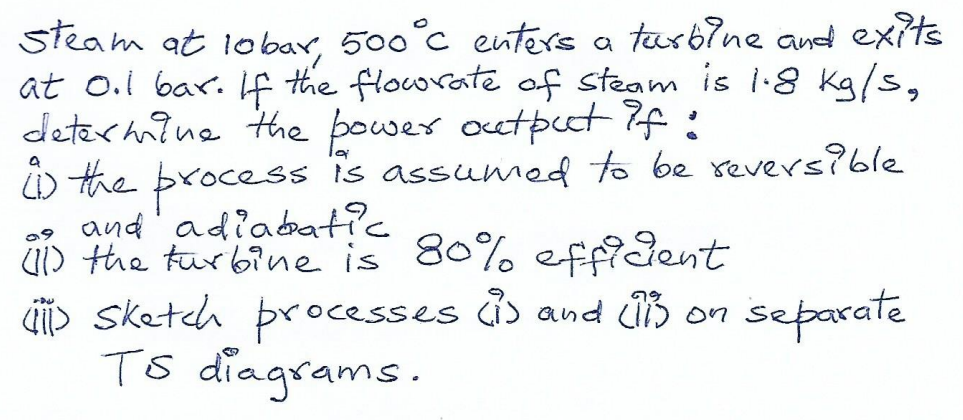 Steam at 10bar, 500°C enters a turbine and exits
at 0.1 bar. If the flowrate of steam is 1.8 Kg/s,
determine the power output if :
(i) the process is assumed to be reversible
and adiabatic
(ii) the turbine is 80% efficient
(iii) sketch processes (i) and (ii) on separate
TS diagrams.